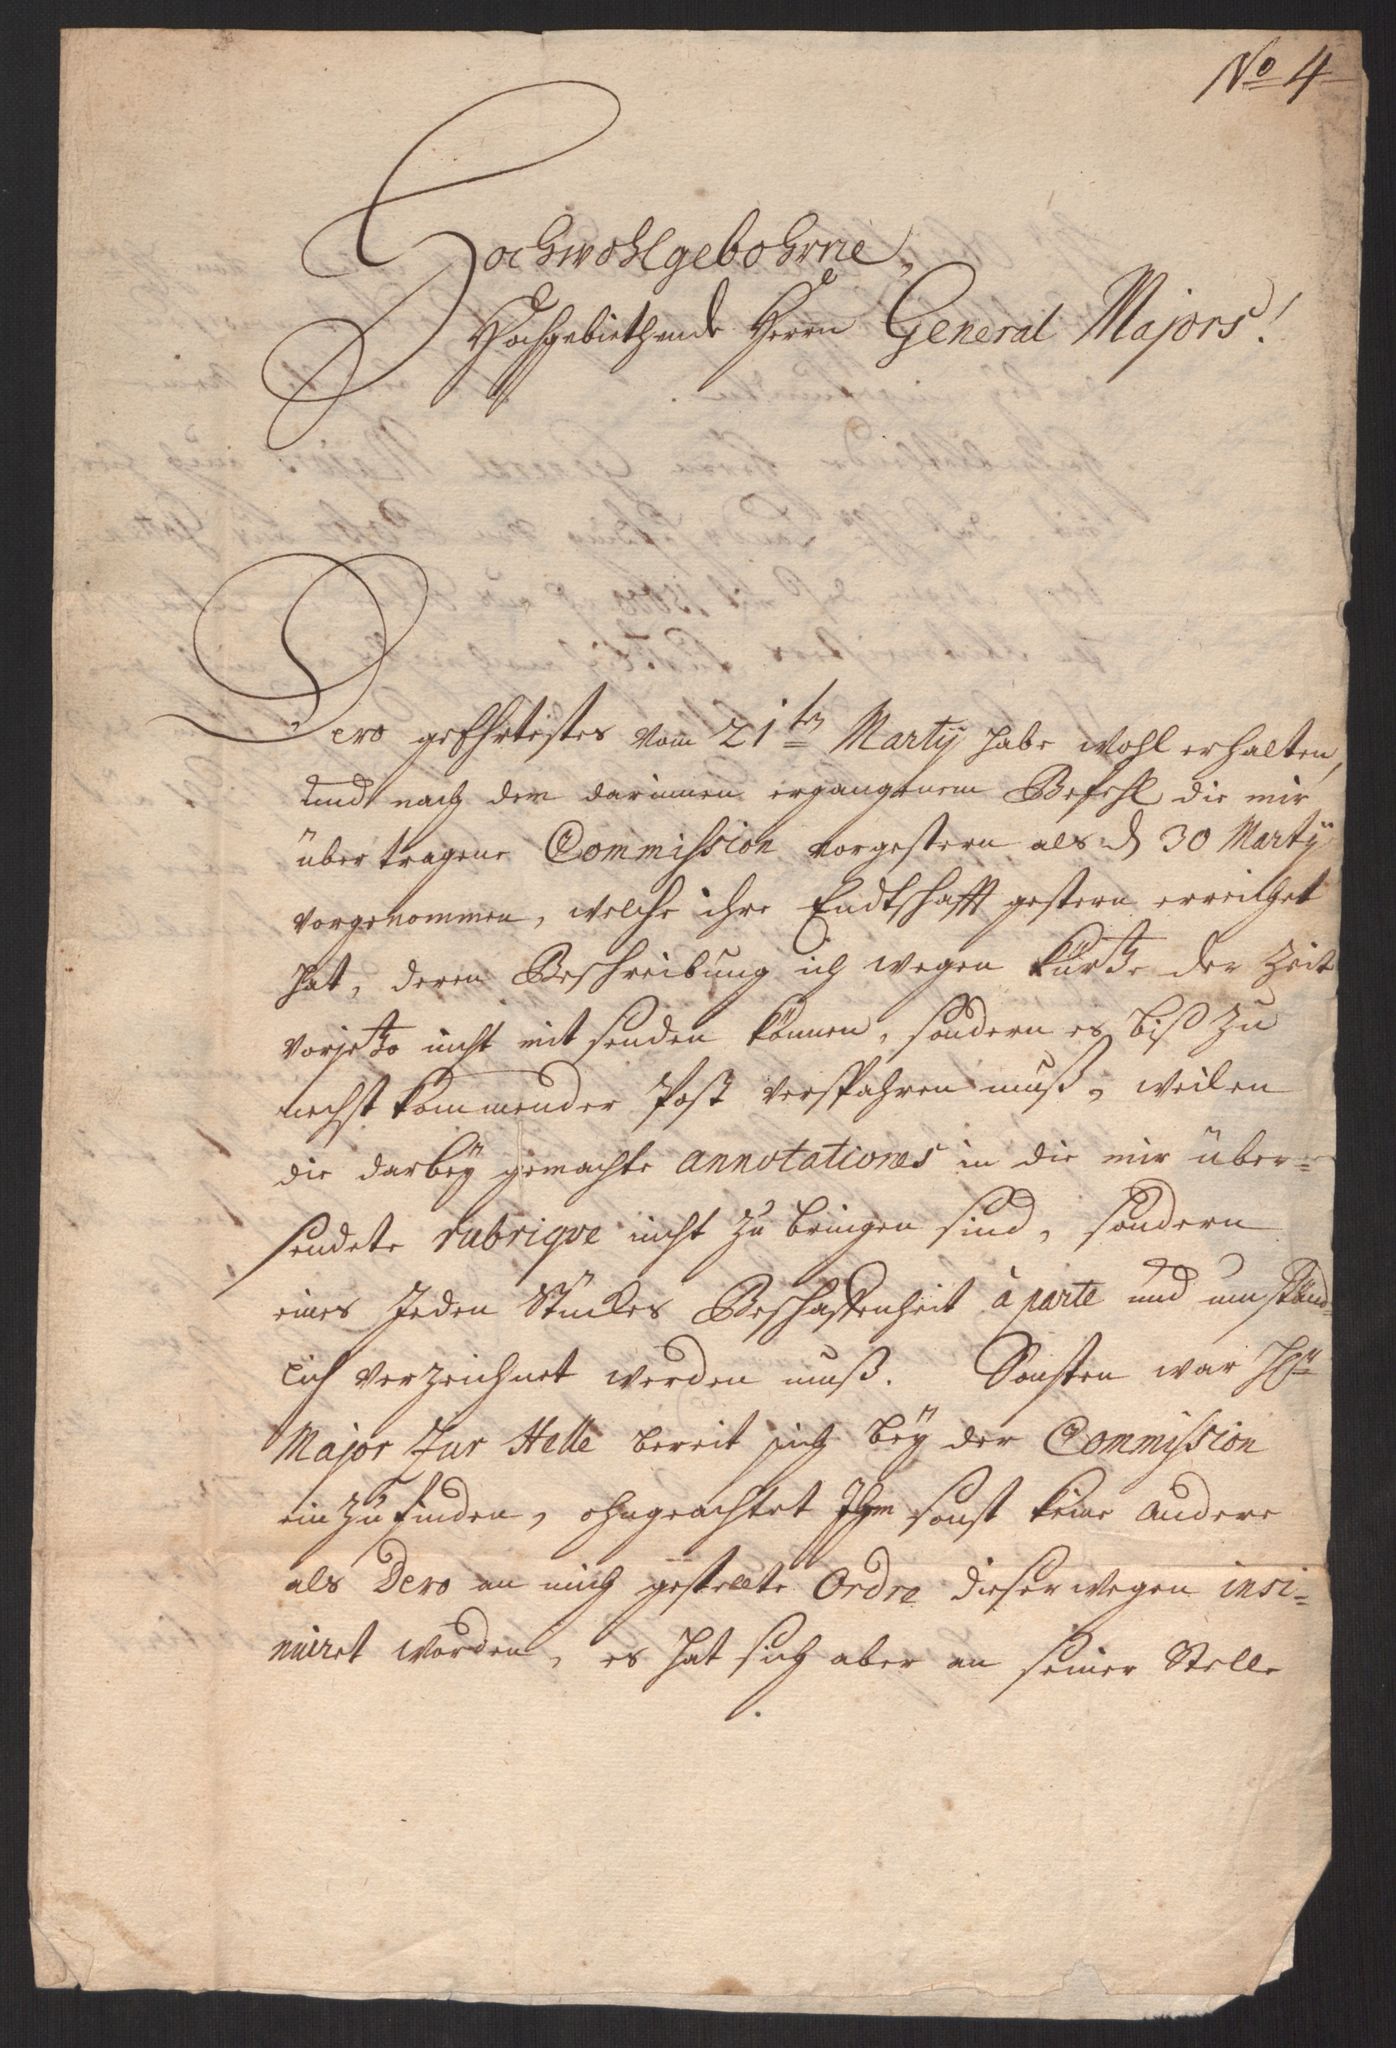 No 4
Hochwohlgebohrne,
Hochgebiethende Herrn General Majors!
Dero geEhrtestes vom 21ten Martij habe wohl erhalten,
und nach dem darinnen ergangenem Befehl die mir
übertragene Commission vorgestern als d 30 Martij
vorgenommen, welche ihre Endtschafft gestern erreichet
hat, deren Beschreibung ich wegen kürtze der Zeit
vorjetzo nicht mit senden können, sondern es biß zu
nechst kommender Post verspahren muß, weilen
die darbey gemachte annotationes in die mir über=
sendete rubrique nicht zu bringen sind, sondern
eines Jeden Stückes Beschaffenheit à parte und umständ=
lich verzeichnet werden muß. Sonsten war Hr
Major Zur Helle bereit sich bey der Commission
einzufinden, ohngeachtet Ihm sonst keine andere
als Dero an mich gestellte Ordre dieserwegen insi=
nuiret worden, es hat sich aber an seiner Stelle